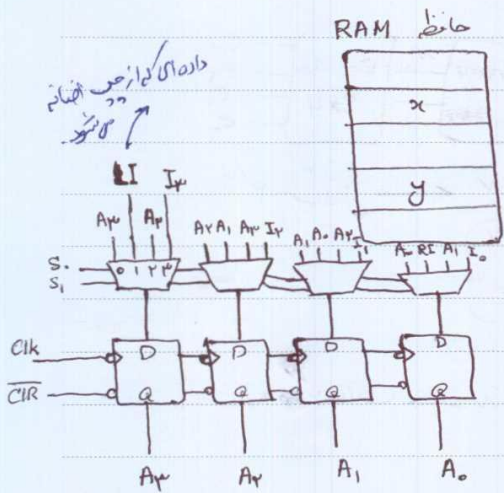 RAM حافظه
x
y
داده‌ای که از چپ اضافه
می‌شود
LI I۳
A۳ A۲
A۲ A۱ A۳ I۲
A۱ A۰ A۲ I۱
A۰ RI A۱ I۰
S۰
S۱
۰ ۱ ۲ ۳
Clk
D D D D
CIR
Q Q Q Q
A۳ A۲ A۱ A۰